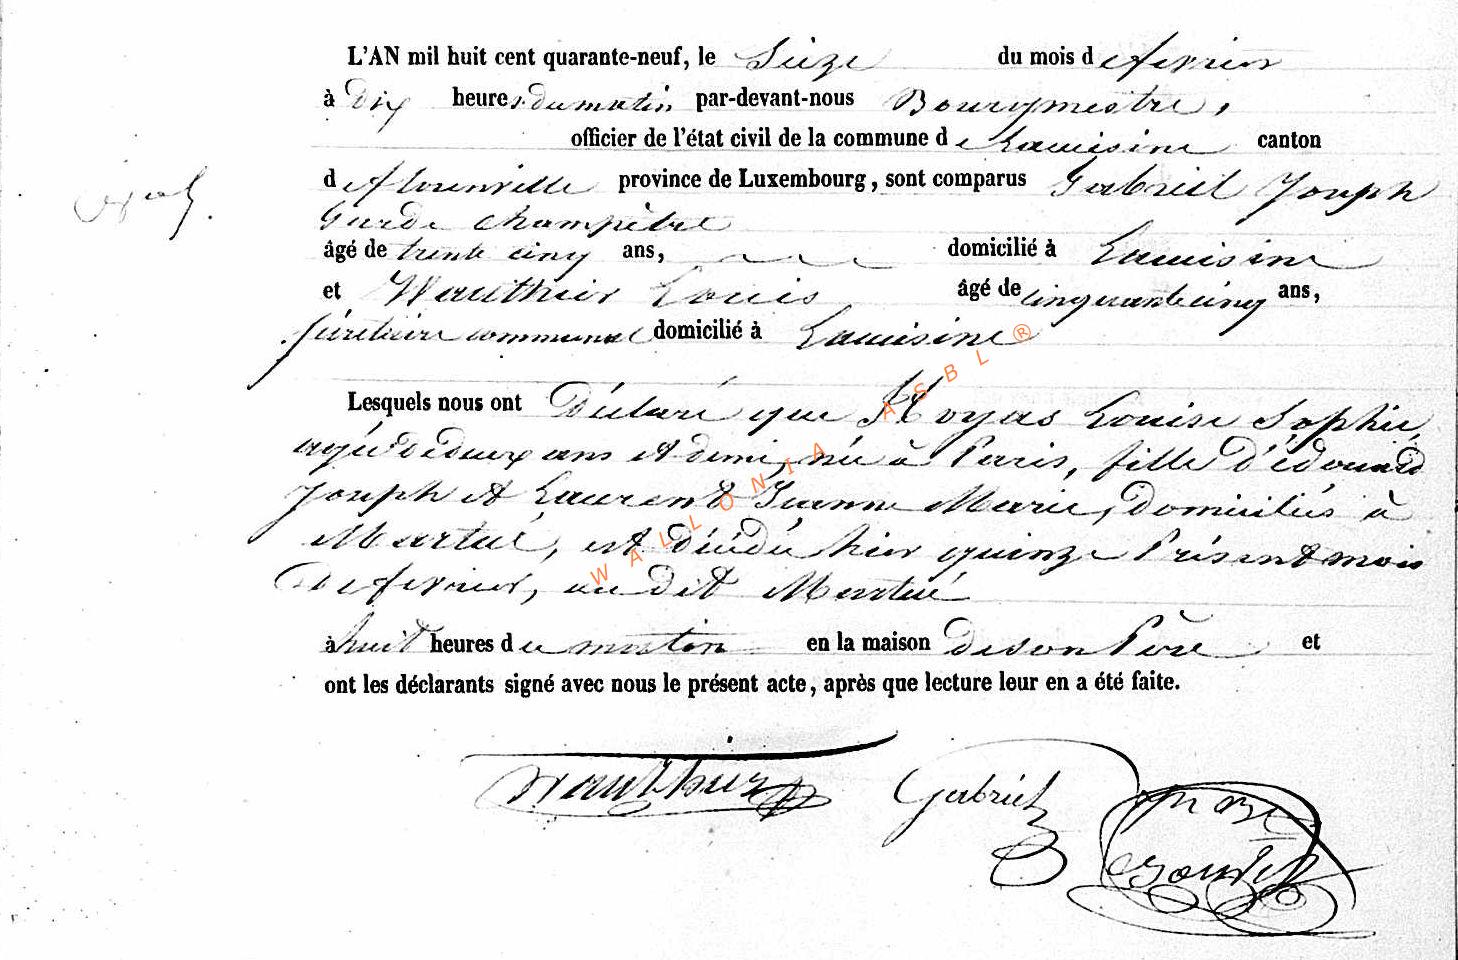 L'AN mil huit cent quarante-neuf, le Seize du mois de fevrier
à Dix heures du matin par-devant-nous Bourgmestre,
officier de l'état civil de la commune de Lacuisine canton
de florenville province de Luxembourg, sont comparus Gabriel Joseph
Garde champêtre
âgé de trente cinq ans, domicilié à Lacuisine
et Wauthier Louis âgé de cinquante cinq ans,
sécrétaire communal domicilié à Lacuisine
Lesquels nous ont Déclaré que Noyas Louise Sophie,
agée de deux ans et demi, née à Paris, fille d'édouard
Joseph et Laurent Jeanne Marie, domiciliés à
Martué, est Décédé hier quinze Présent mois
De fevrier, au dit Martué
à huit heures du matin en la maison de son Père et
ont les déclarants signé avec nous le présent acte, après que lecture leur en a été faite.
Wauthier Gabriel
WALLONIA ASBL®